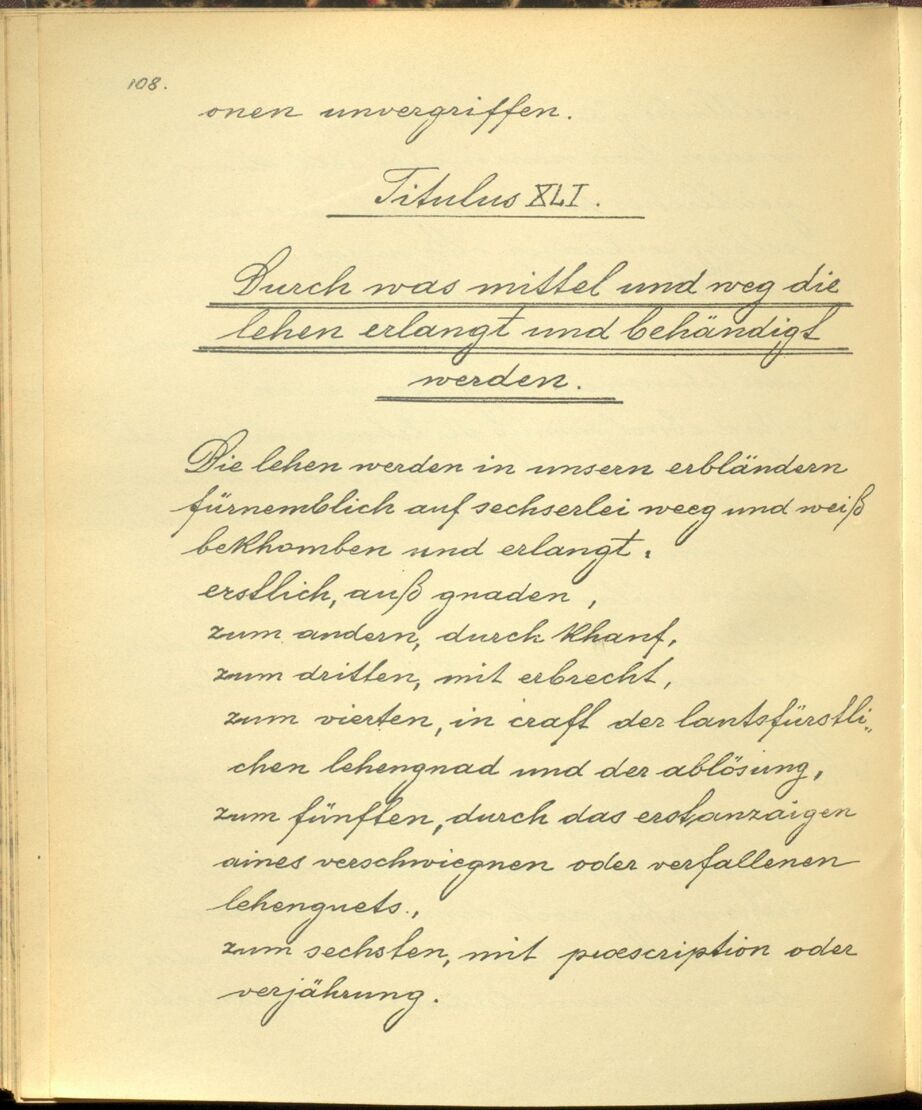 108.
onen unvergriffen.
Titulus XLI.
Durch was mittel und weg die
lehen erlangt und behändigt
werden.
Die lehen werden in unsern erbländern
fürnemblich auf sechserlei weeg und weiß
bekhomben und erlangt.
erstlich, auß gnaden,
zum andern, durch khauf,
zum dritten, mit erbrecht,
zum vierten, in craft der lantsfürstli„
chen lehengnad und der ablösung,
zum fünften, durch das erst anzaigen
aines verschwiegnen oder verfallenen
lehenguets.,
zum sechsten, mit præscription oder
verjährung.